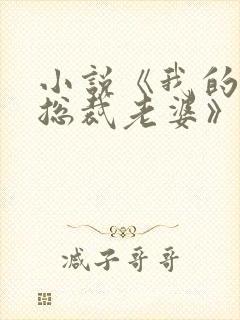 小说《我的
总裁老婆》
减子哥哥